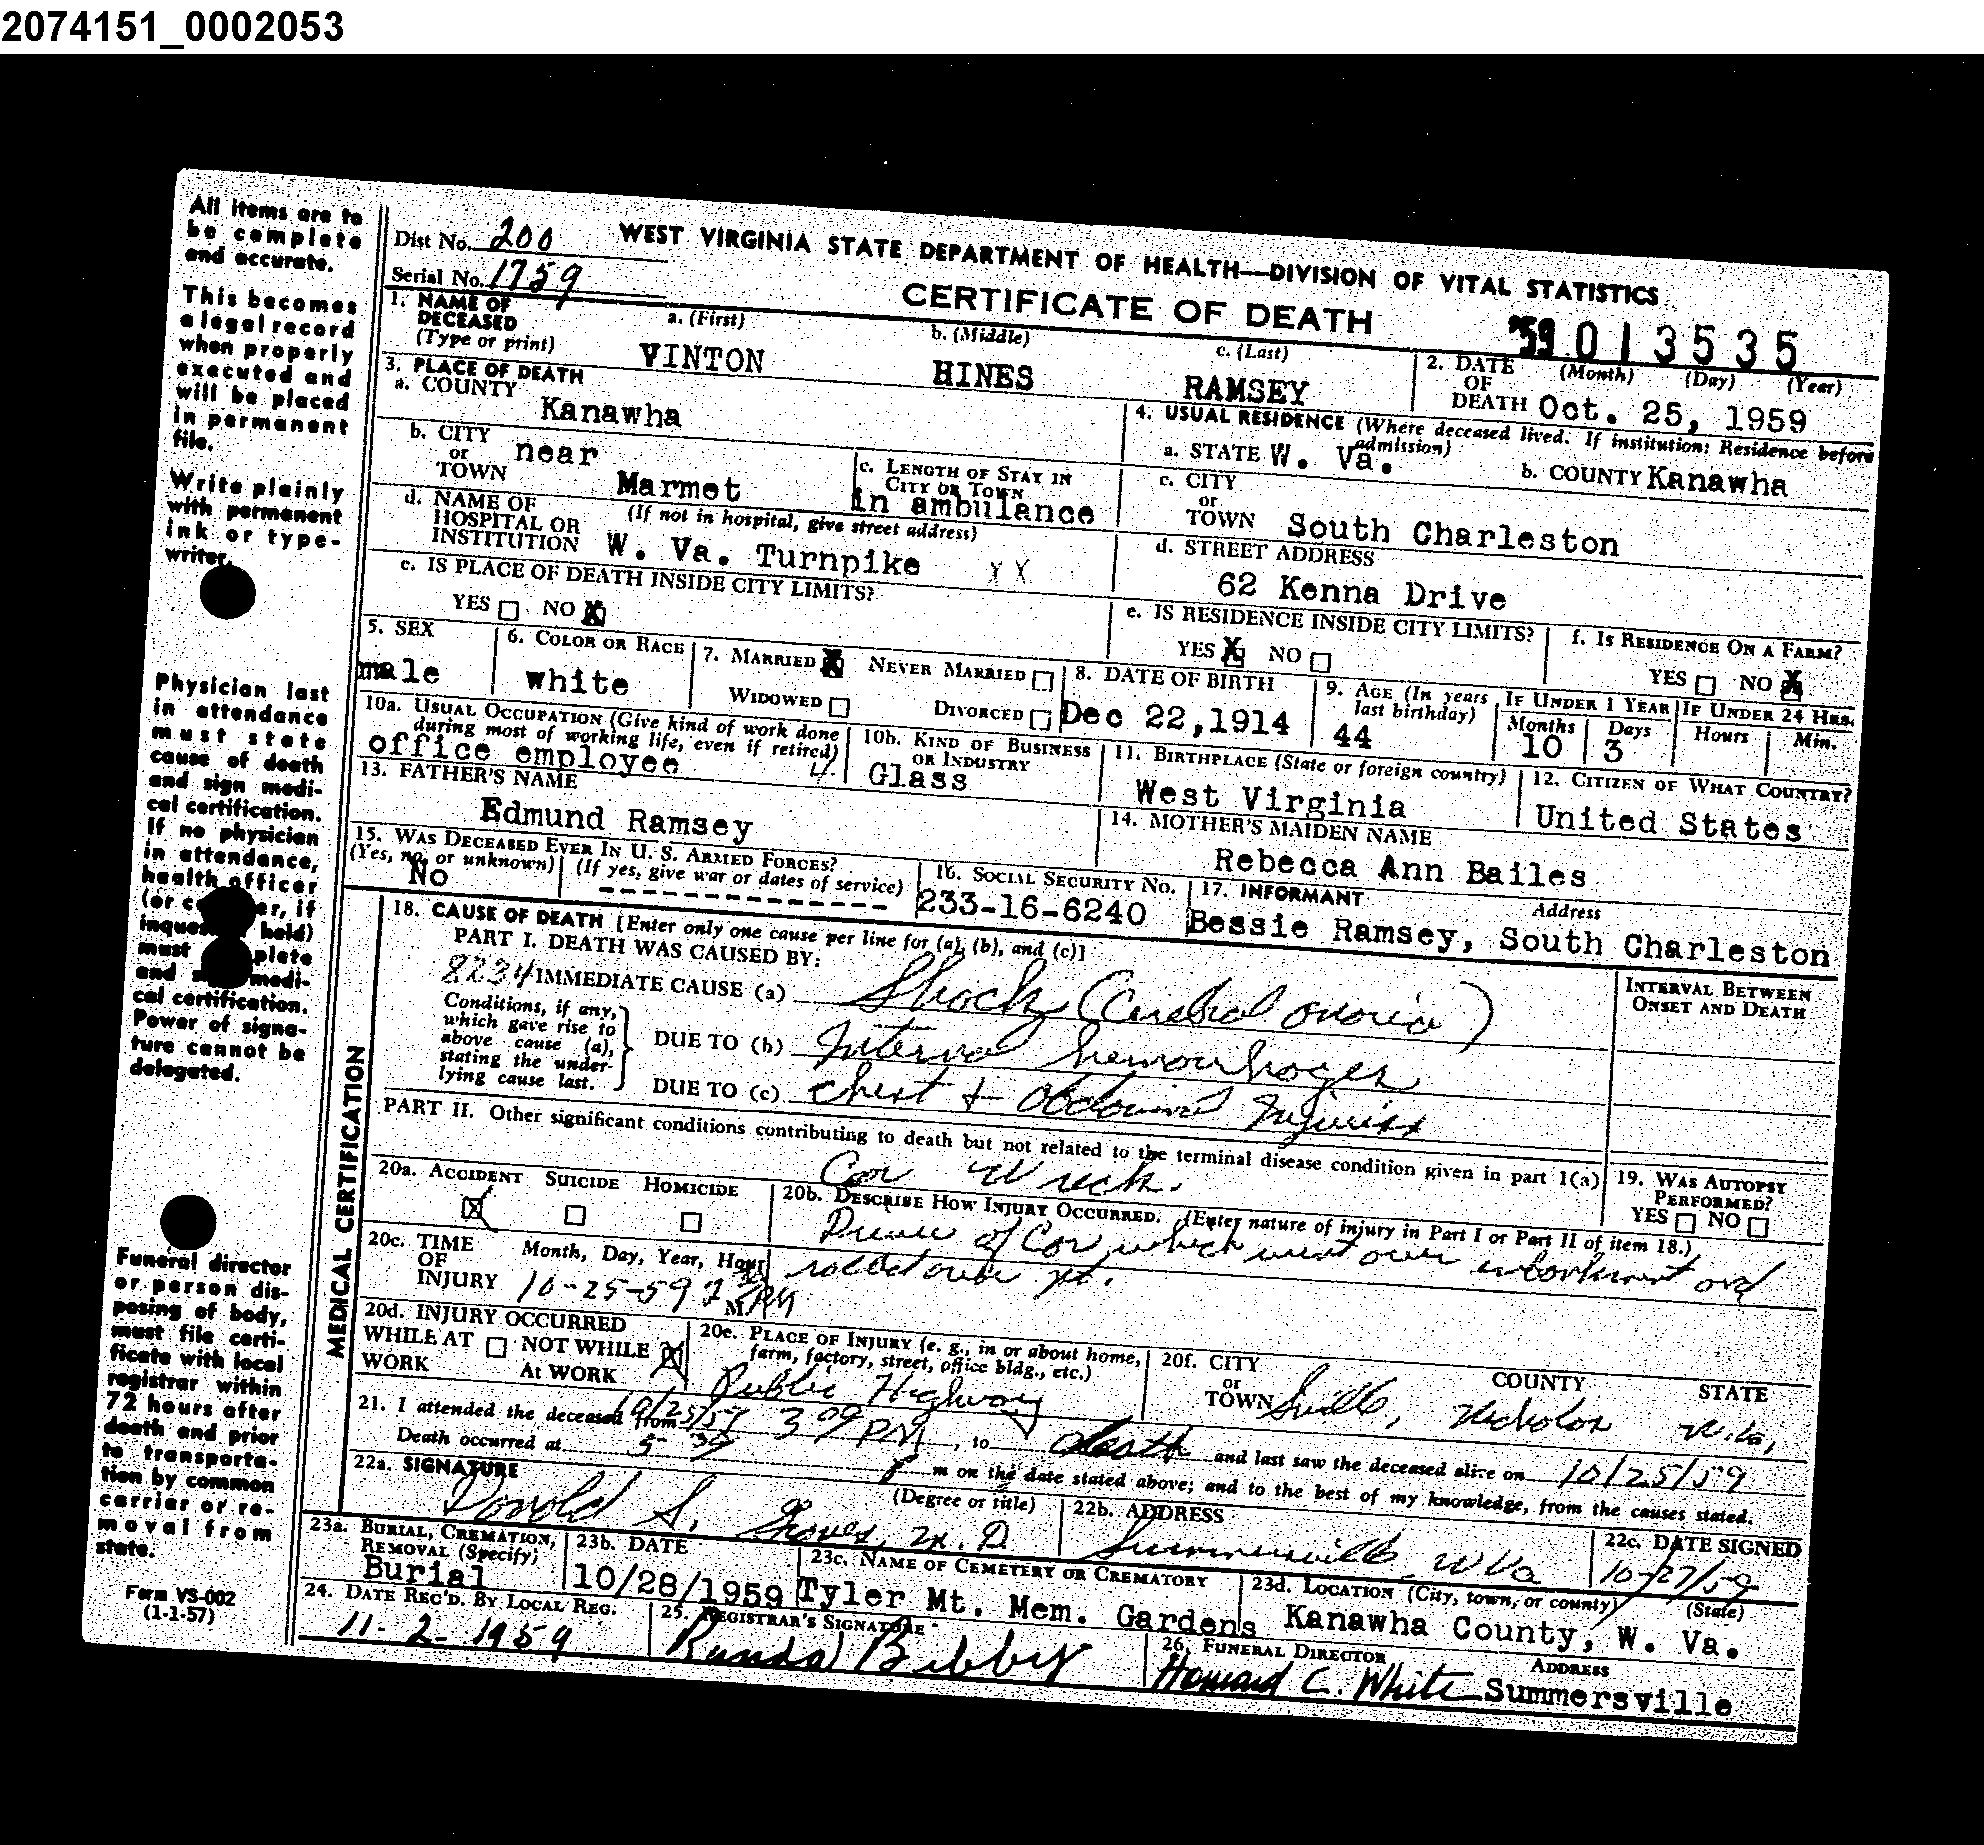 2074151_0002053
All items are to
be complete
and accurate.
This becomes
a legal record
when properly
executed and
will be placed
in permanent
file.
Write plainly
with permanent
ink or type-
writer.
Physician last
in attendance
must state
cause of death
and sign medi-
cal certification.
If no physician
in attendance,
health officer
(or er, if
held)
must plete
and medi-
cal certification.
Power of signa-
ture cannot be
delegated.
Funeral director
or person dis-
posing of body,
must file certi-
ficate with local
registrar within
72 hours after
death and prior
to transporta-
tion by common
carrier or re-
moval from
state.
Form VS-002
(1-1-57)
Dist No. 200
Serial No. 1759
WEST VIRGINIA STATE DEPARTMENT OF HEALTH—DIVISION OF VITAL STATISTICS
CERTIFICATE OF DEATH
59 013535
1. NAME OF DECEASED (Type or print)
a. (First) VINTON
b. (Middle) HINES
c. (Last) RAMSEY
2. DATE OF DEATH (Month) (Day) (Year) Oct. 25, 1959
3. PLACE OF DEATH
a. COUNTY Kanawha
b. CITY or TOWN near Marmet
c. LENGTH OF STAY IN CITY OR TOWN in ambulance
d. NAME OF HOSPITAL OR INSTITUTION (If not in hospital, give street address) W. Va. Turnpike XX
e. IS PLACE OF DEATH INSIDE CITY LIMITS?
YES NO X
4. USUAL RESIDENCE (Where deceased lived. If institution: Residence before admission)
a. STATE W. Va.
b. COUNTY Kanawha
c. CITY or TOWN South Charleston
d. STREET ADDRESS
62 Kenna Drive
e. IS RESIDENCE INSIDE CITY LIMITS?
YES X NO
f. IS RESIDENCE ON A FARM?
YES NO X
5. SEX male
6. COLOR OR RACE white
7. MARRIED X NEVER MARRIED
WIDOWED DIVORCED
8. DATE OF BIRTH Dec 22,1914
9. AGE (In years last birthday) 44
IF UNDER 1 YEAR Months 10 Days 3
IF UNDER 24 HRS. Hours Min.
10a. USUAL OCCUPATION (Give kind of work done during most of working life, even if retired) office employee 4
10b. KIND OF BUSINESS OR INDUSTRY Glass
11. BIRTHPLACE (State or foreign country) West Virginia
12. CITIZEN OF WHAT COUNTRY? United States
13. FATHER'S NAME Edmund Ramsey
14. MOTHER'S MAIDEN NAME Rebecca Ann Bailes
15. WAS DECEASED EVER IN U. S. ARMED FORCES?
(Yes, no, or unknown) No
(If yes, give war or dates of service) ------------
16. SOCIAL SECURITY NO. 233-16-6240
17. INFORMANT Address
Bessie Ramsey, South Charleston
MEDICAL CERTIFICATION
18. CAUSE OF DEATH [Enter only one cause per line for (a), (b), and (c)]
PART I. DEATH WAS CAUSED BY:
8234 IMMEDIATE CAUSE (a) Shock (Cerebral anoxia)
Conditions, if any, which gave rise to above cause (a), stating the underlying cause last.
DUE TO (b) Internal hemorrhages
DUE TO (c) Chest + Abdominal Injuries
INTERVAL BETWEEN ONSET AND DEATH
PART II. Other significant conditions contributing to death but not related to the terminal disease condition given in part 1(a)
Car Wreck.
19. WAS AUTOPSY PERFORMED?
YES NO
20a. ACCIDENT X SUICIDE HOMICIDE
20b. DESCRIBE HOW INJURY OCCURRED. (Enter nature of injury in Part I or Part II of item 18.)
Driver of Car which went over embankment and
rolled over
20c. TIME OF INJURY Month, Day, Year, Hour
10-25-59 M. PM
20d. INJURY OCCURRED
WHILE AT WORK NOT WHILE At WORK X
20e. PLACE OF INJURY (e. g., in or about home, farm, factory, street, office bldg., etc.)
Public Highway
20f. CITY or TOWN COUNTY STATE
Sville, Nicholas W.Va,
21. I attended the deceased from 10/25/59 3 PM, to death and last saw the deceased alive on 10/25/59
Death occurred at 5 39 P m on the date stated above; and to the best of my knowledge, from the causes stated.
22a. SIGNATURE (Degree or title)
Donald S. Groves, M. D.
22b. ADDRESS
Summersville, W Va
22c. DATE SIGNED
10/27/59
23a. BURIAL, CREMATION, REMOVAL (Specify) Burial
23b. DATE 10/28/1959
23c. NAME OF CEMETERY OR CREMATORY Tyler Mt. Mem. Gardens
23d. LOCATION (City, town, or county) (State) Kanawha County, W. Va.
24. DATE REC'D. BY LOCAL REG. 11-2-1959
25. REGISTRAR'S SIGNATURE Bibby
26. FUNERAL DIRECTOR ADDRESS
Howard C. White Summersville